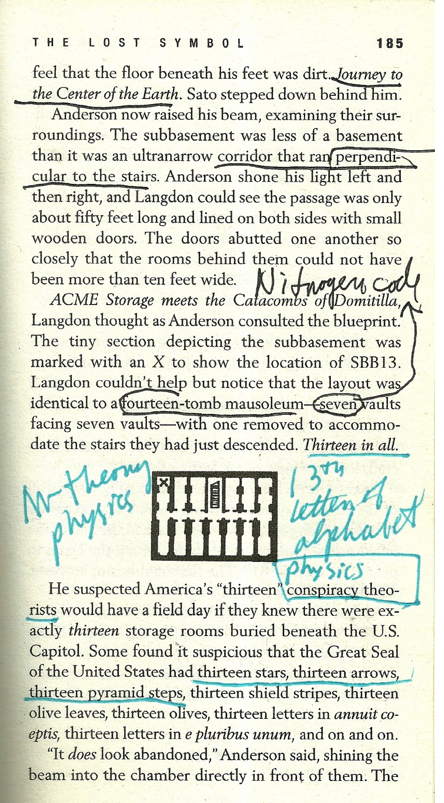 THE LOST SYMBOL 185
feel that the floor beneath his feet was dirt. Journey to
the Center of the Earth. Sato stepped down behind him.
Anderson now raised his beam, examining their sur-
roundings. The subbasement was less of a basement
than it was an ultranarrow corridor that ran perpendi-
cular to the stairs. Anderson shone his light left and
then right, and Langdon could see the passage was only
about fifty feet long and lined on both sides with small
wooden doors. The doors abutted one another so
closely that the rooms behind them could not have
been more than ten feet wide.
Nitrogen code
ACME Storage meets the Catacombs of Domitilla,
Langdon thought as Anderson consulted the blueprint.
The tiny section depicting the subbasement was
marked with an X to show the location of SBB13.
Langdon couldn't help but notice that the layout was
identical to a fourteen-tomb mausoleum—seven vaults
facing seven vaults—with one removed to accommo-
date the stairs they had just descended. Thirteen in all.
M-theory
physics
X
13th
letter of
alphabet
physics
He suspected America's "thirteen" conspiracy theo-
rists would have a field day if they knew there were ex-
actly thirteen storage rooms buried beneath the U.S.
Capitol. Some found it suspicious that the Great Seal
of the United States had thirteen stars, thirteen arrows,
thirteen pyramid steps, thirteen shield stripes, thirteen
olive leaves, thirteen olives, thirteen letters in annuit co-
eptis, thirteen letters in e pluribus unum, and on and on.
"It does look abandoned," Anderson said, shining the
beam into the chamber directly in front of them. The